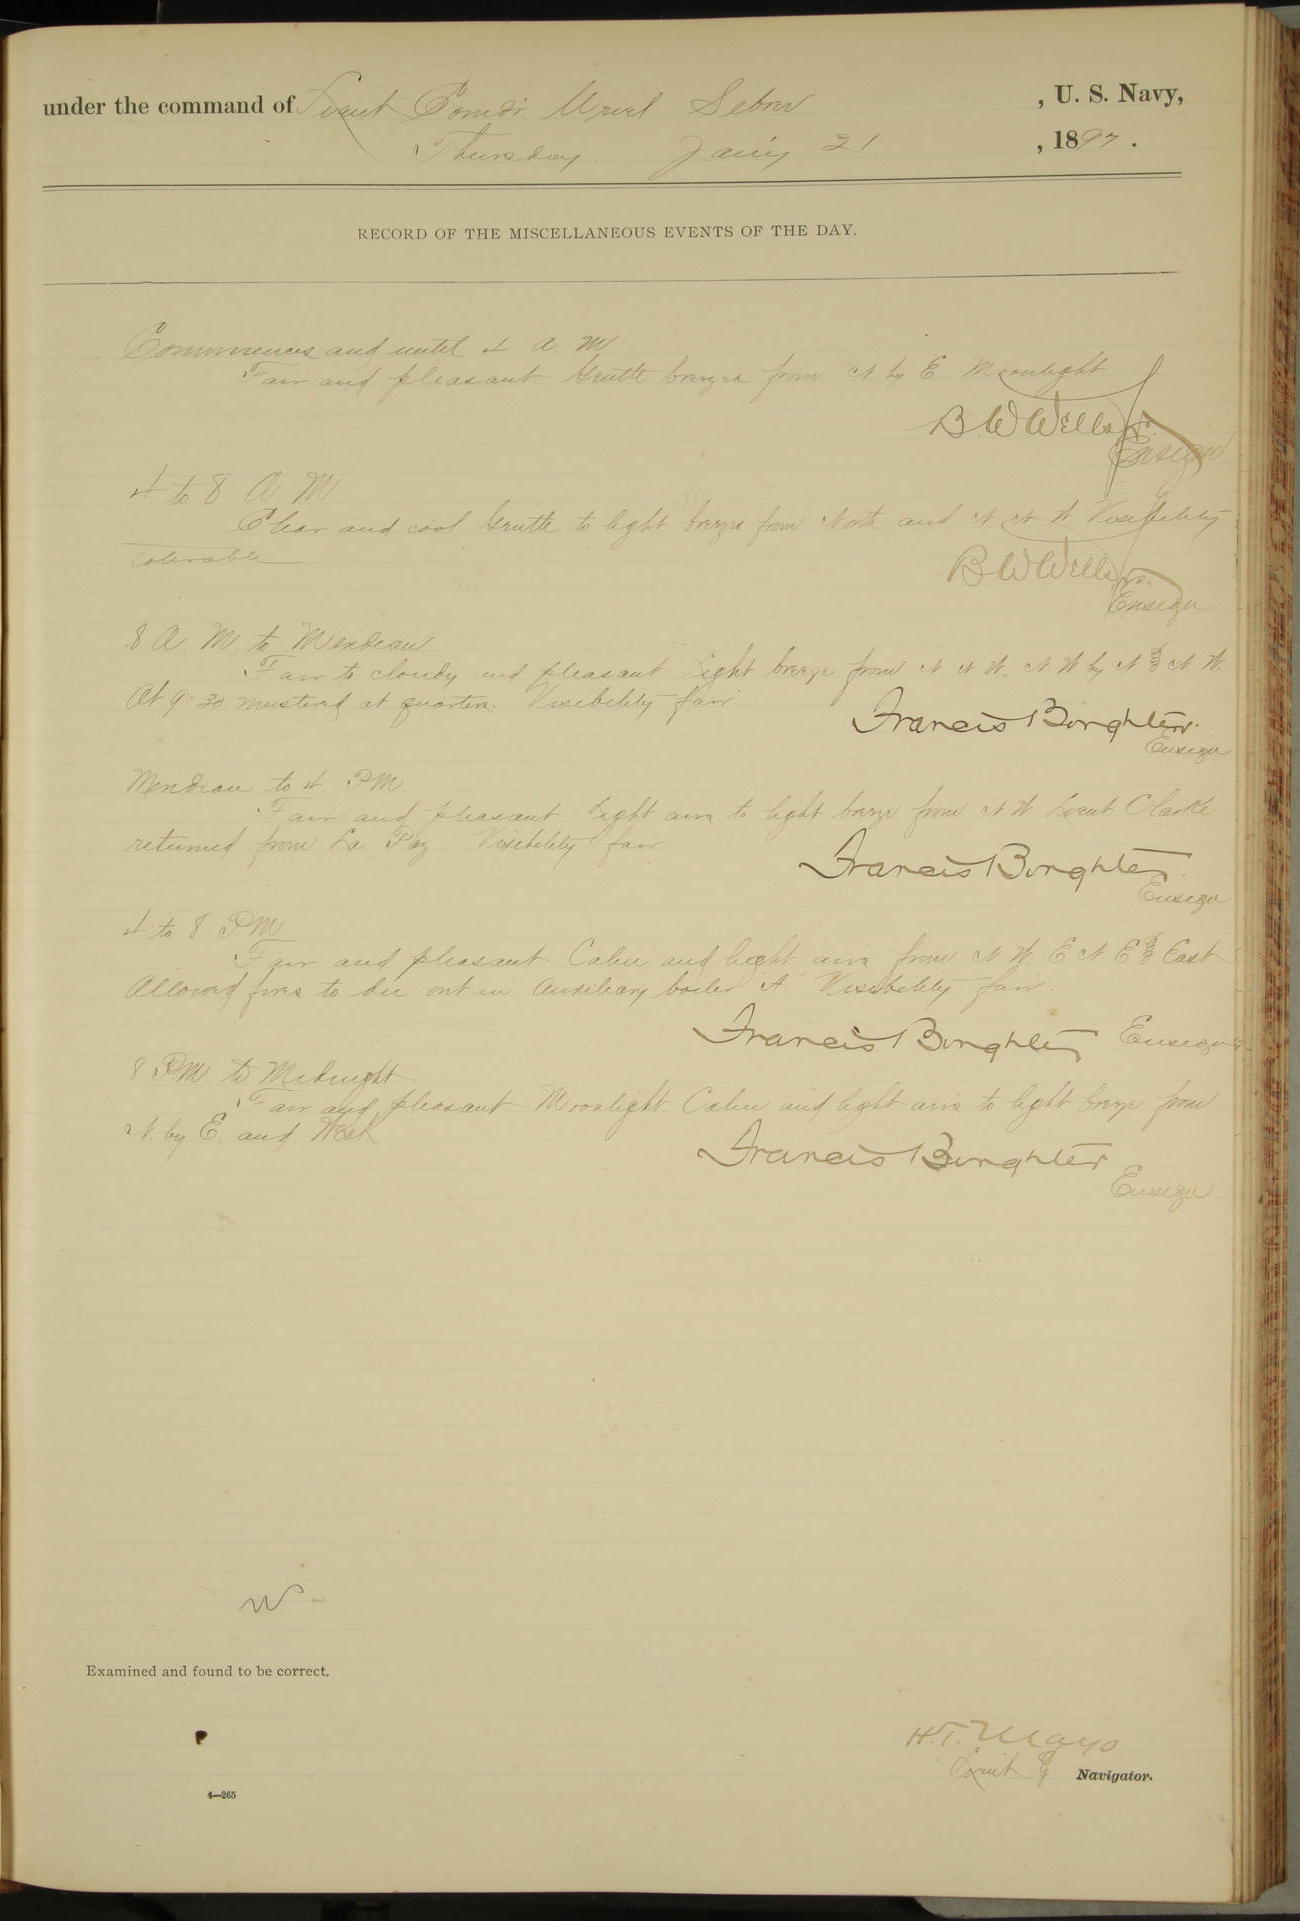 under the command of Lieut Comdr. Uriel Sebree , U. S. Navy,
Thursday Jany 21 , 1897.
RECORD OF THE MISCELLANEOUS EVENTS OF THE DAY.
Commences and until 4 A M
Fair and pleasant Gentle breezes from N by E Moonlight
B. W. Wells Jr.
Ensign
4 to 8 A. M
Clear and cool Gentle to light breeze from North and N N W Visibility
tolerable
B W Wells Jr.
Ensign
8 A. M. to Meridian
Fair to cloudy and pleasant. Light breeze from N N W, N W by N & N W.
At 9:30 mustered at quarters. Visibility fair
Francis Boughter.
Ensign
Meridian to 4 PM
Fair and pleasant Light airs to light breeze from N W Lieut Clarke
returned from La Paz. Visibility fair
Francis Boughter.
Ensign
4 to 8 PM
Fair and pleasant Calm and light airs from N W. E N E & East
Allowed fires to die out in Auxiliary boiler "A" Visibility fair.
Francis Boughter Ensign
8 P.M. to Midnight
Fair and pleasant Moonlight. Calm and light airs to light breeze from
N. by E. and West
Francis Boughter
Ensign
Examined and found to be correct.
H. T. Mayo
Lieut. & Navigator.
4—265